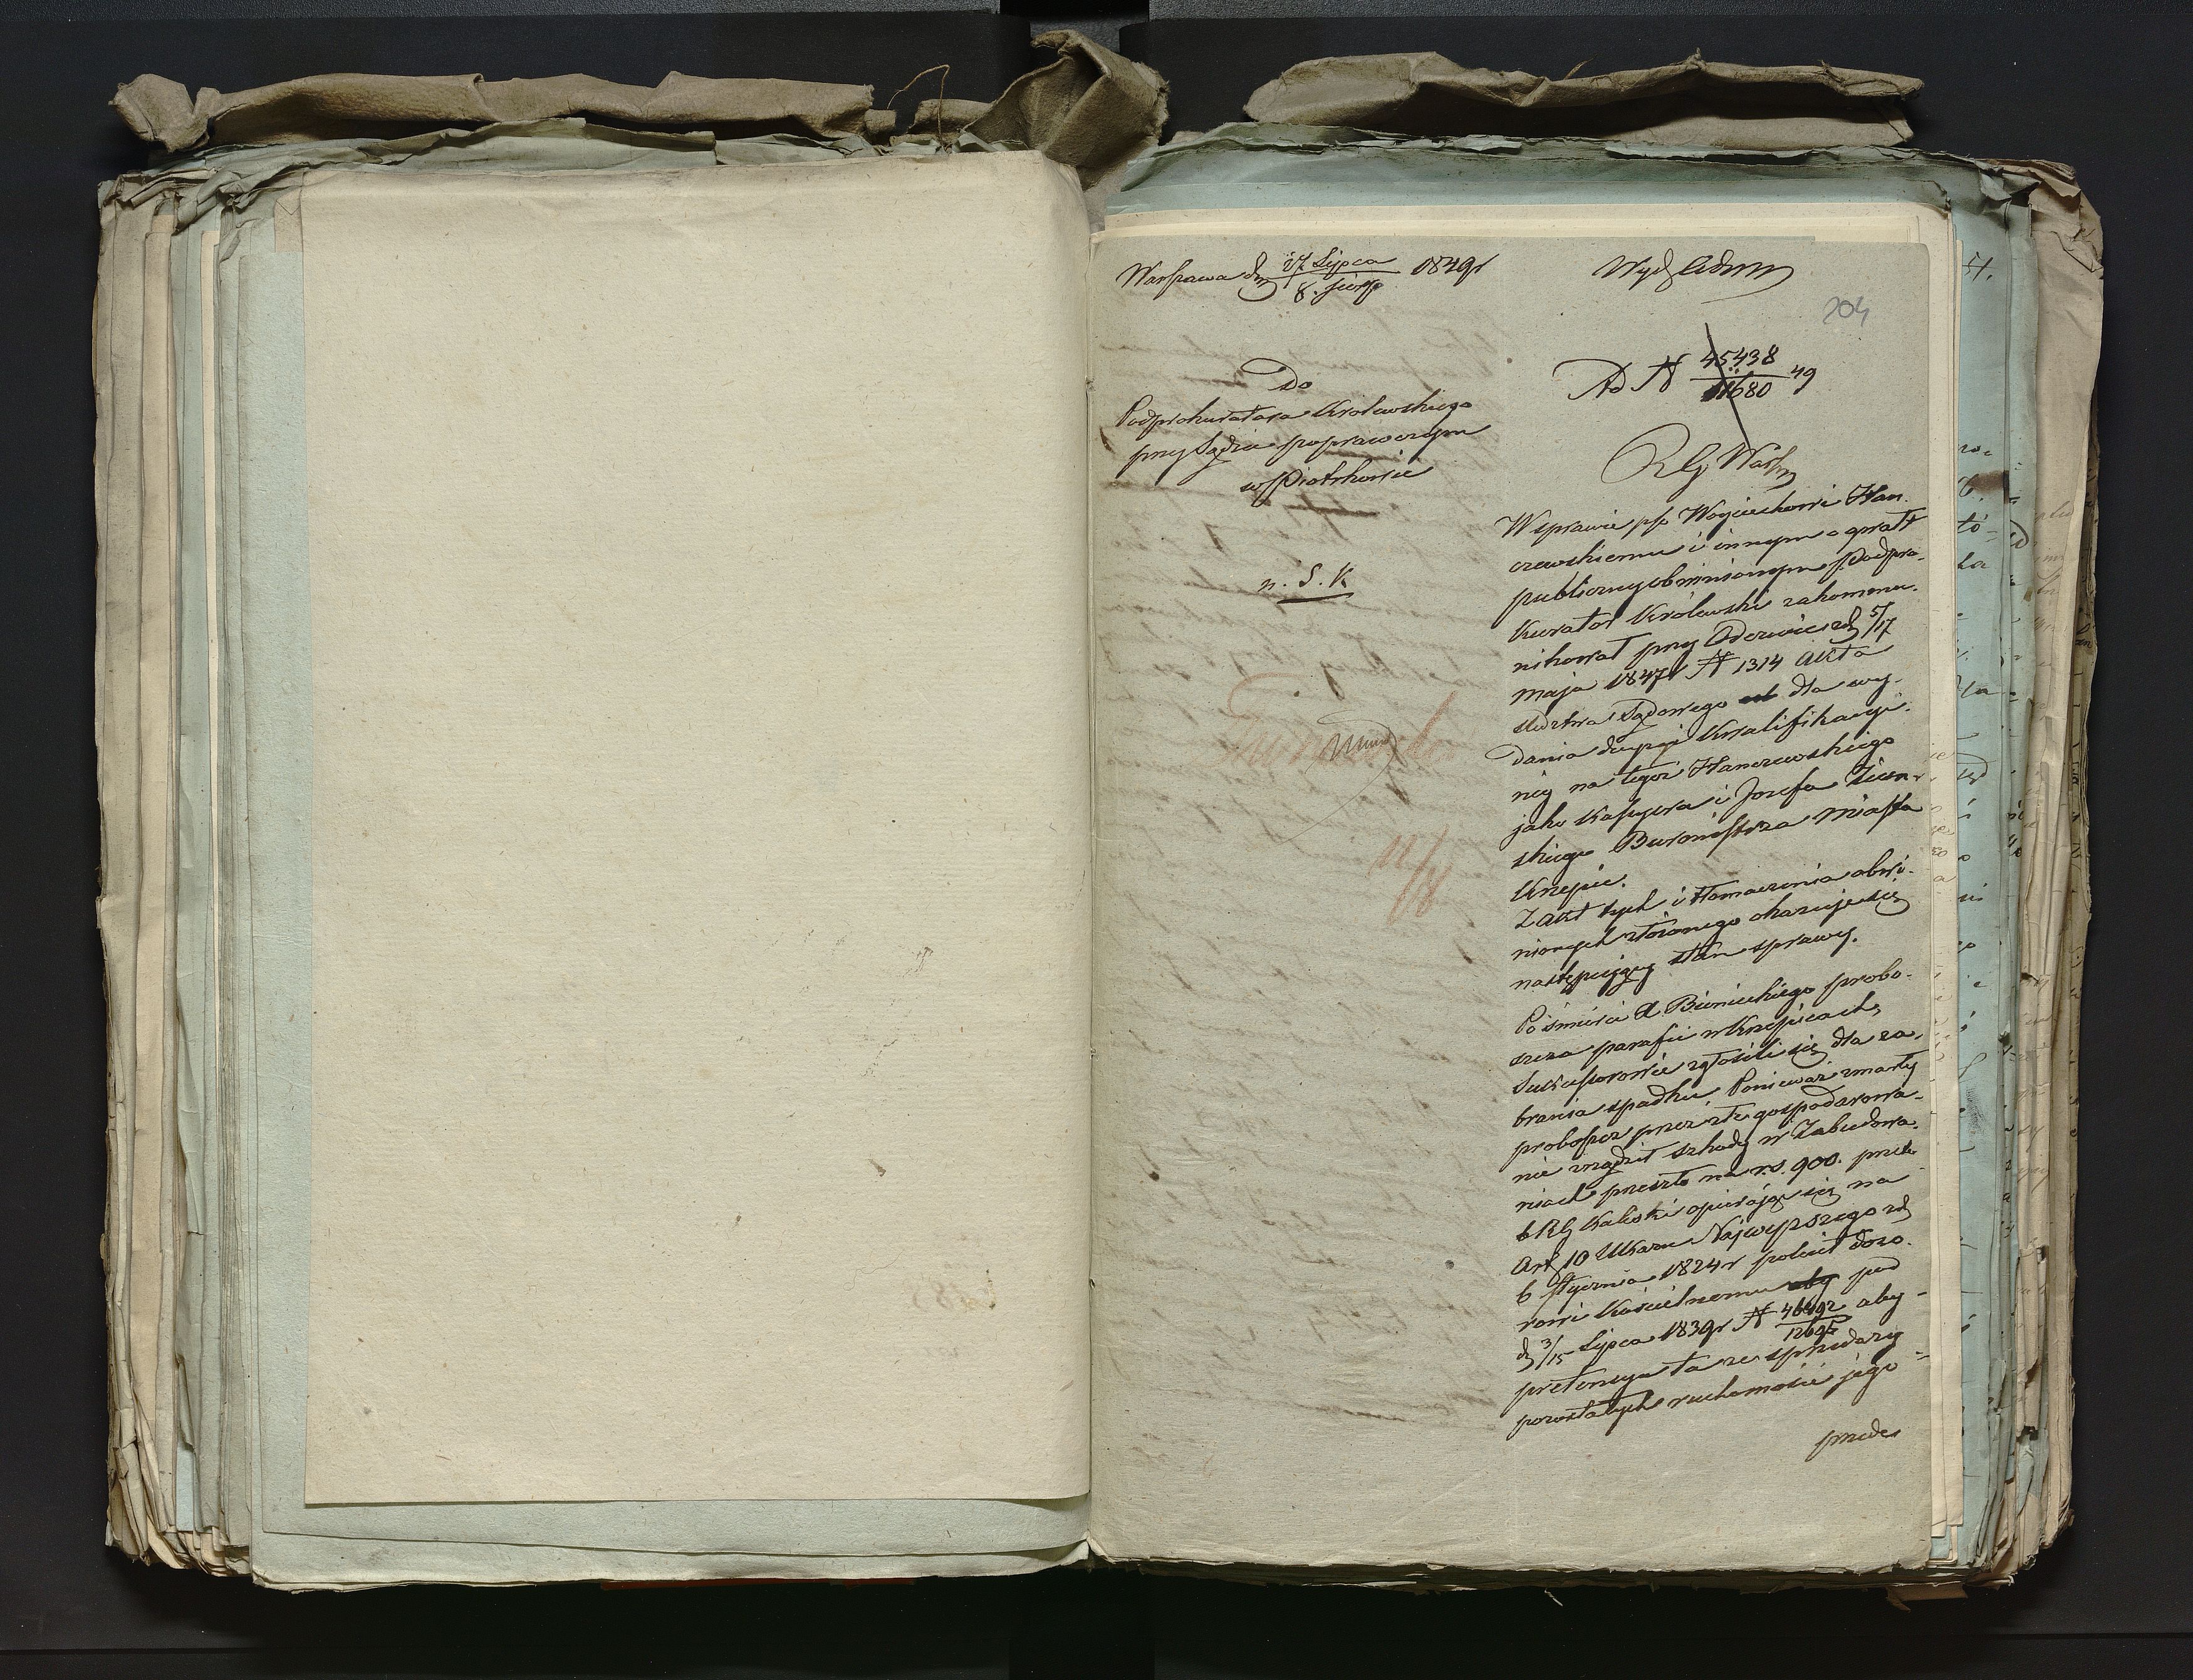 Warszawa dn 27 Lipca / 8. Sierp 1849r
Wydz Admin
204
Do
Podprokuratora Królewskiego
przy Sądzie poprawczym
w Piotrkowie
n. S. K
12/8
Ad N 45438 / 11680 49
RG Warsz
W sprawie pko Wojciechowi Han-
czewskiemu i innym o gwałt
publiczny obwinionym Podpro-
kurator Królewski zakommu-
nikował przy Odezwie z d 5/17
maja 1847r N 1314 Akta
śledztwa Sądowego dla wy-
dania decyzyi kwalifikacyi-
néy na tegoż Hanczewskiego
jako Kassyera i Jozefa
skiego Burmistrza Miasta
Krzepic.
Z Akt tych i tłomaczenia obwi-
nionych złożonego okazuje się
następujący stan sprawy.
Po śmierci X. Bienieckiego probo-
szcza parafii w Krzepicach,
Sukcessorowie zgłosili się dla za-
brania spadku. Ponieważ zmarły
proboszcz przez złe gospodarowa-
nie zrządził szkody w Zabudowa-
niach przeszło na r.s. 900. przeto
b RG Kaliski opierając się na
Art 10 Ukazu Najwyższego z d
6 Stycznia 1824r polecił dozo-
rowi Kościelnemu aby pod
d 3/15 Lipca 1839r N 46492 / 12695 aby
pretensya ta ze sprzedaży
pozostałych ruchomości jego
przede